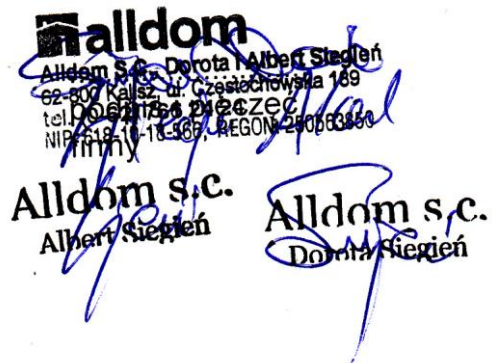 alldom
Alldom S.C., Dorota i Albert Siegień
62-800 Kalisz, ul. Częstochowska 189
podpis i pieczęć
tel.
NIP 618-18-18-566, REGON
firmy
Alldom s.c.
Albert Siegień
Alldom s.c.
Dorota Siegień